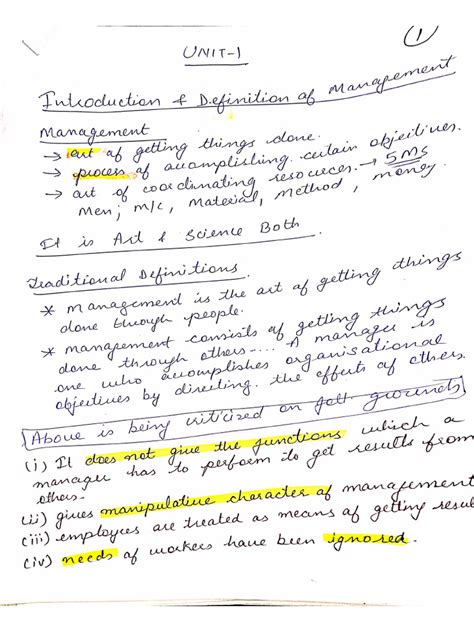 1
UNIT-1
Introduction & Definition of Management
Management
→ art of getting things done.
→ process of accomplishing certain objectives.
→ art of coordinating resources. → 5 Ms
Men, m/c, Material, Method, money.
It is Art & Science Both
Traditional Definitions.
* Management is the art of getting things
done through people.
* Management consists of getting things
done through others..... A manager is
one who accomplishes organisational
objectives by directing the efforts of others.
Above is being criticized on foll. grounds
(i) It does not give the functions which a
manager has to perform to get results from
others.
(ii) gives manipulative character of management
(iii) employees are treated as means of getting resul
(iv) needs of workers have been ignored.